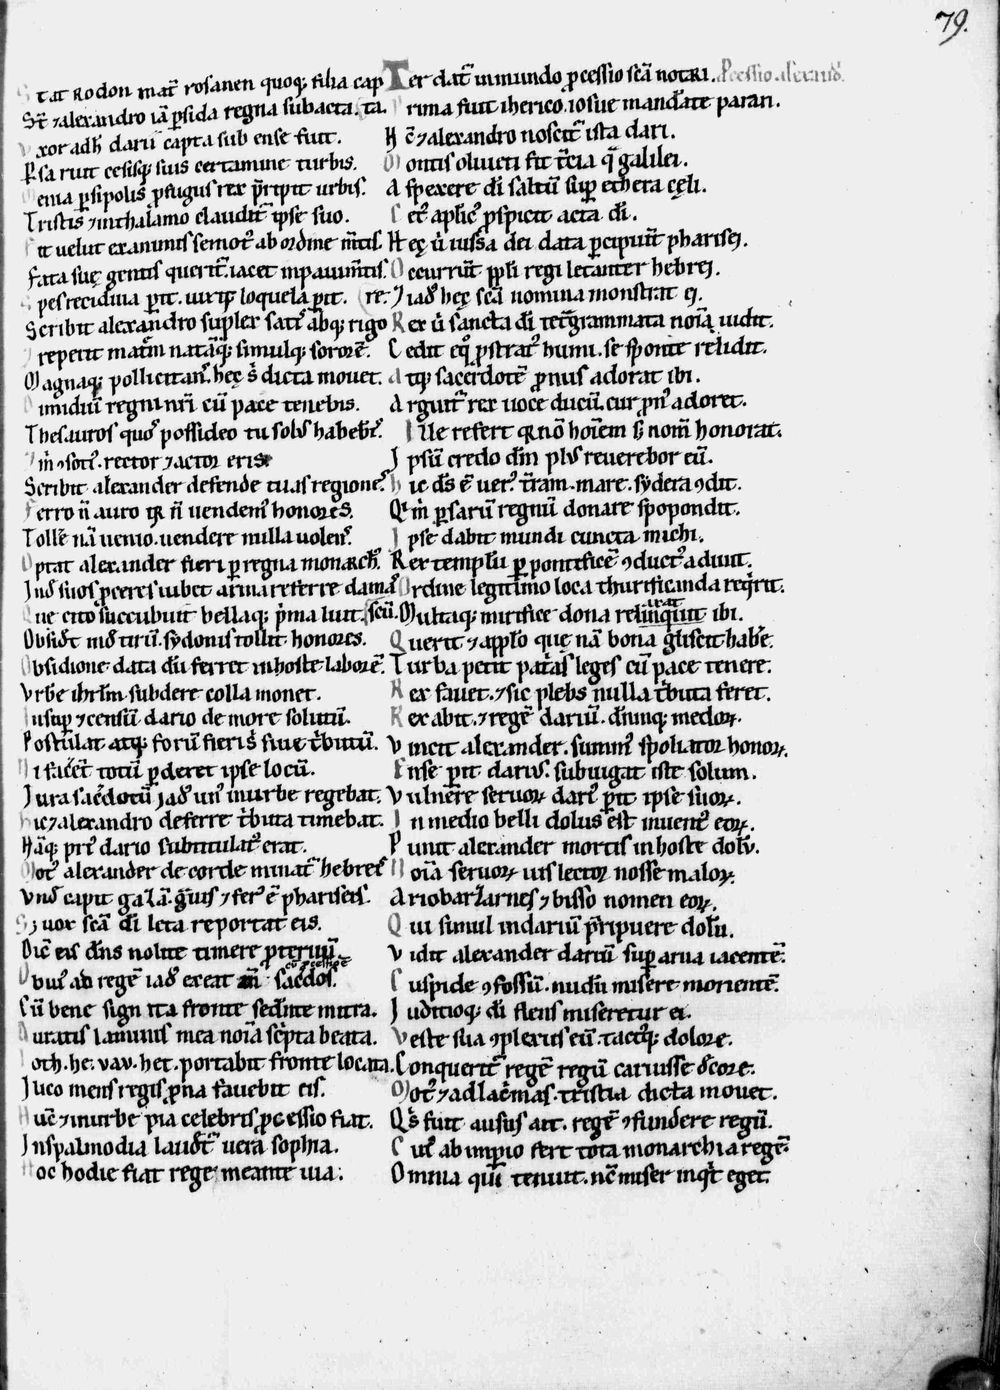 79.
Stat Rodon mat̄ rosanen quoq; filia cap
St̄ ⁊ alexandro iā ꝑsida regna subacta. ta.
Vxor adh̄ darii capta sub ense fuit.
Ꝑsa ruit cesisq; suis certamine turbis.
Menia ꝑsipolis ꝓfugus rex p̄ripit urbis.
Tristis ⁊ inthalamo claudit̄ ipse suo.
Fit velut exanimis semot᷒ ab ordine m̄tis
Fata suę gentis querit. iacet inpauim̄tis.
Spes recidiua ꝑit. uirq; loquela ꝑit. re.
Scribit alexandro supler satr̄ abq; rigo
repetit mat̄m natāq; simulq; sororē.
Magnaq; pollicitan᷒. hec s; dicta mouet.
Dimidiū regni nr̄i cū pace tenebis.
Thesauros quos possideo tu solus habebis.
rector ⁊ actor eris
Scribit alexander defende tuas regiones.
Ferro n̄ auro qr n̄ uendem᷒ honores.
Tolle nā uenio. uendere nulla uolens.
Optat alexander fieri ꝑ regna monarch᷒.
Ind̄ suos ꝓceres iubet arma referre damascū.
Que cito succubuit bellaq; p̄ma luit.
Obsid̄t in᷒ tirū. sydonis tollit honores.
Obsidione data dū ferret inhoste laborē.
Vrbē ihrl̄m subdere colla monet.
Iusuꝑ ⁊ censū dario de more solutū.
Postulat atq; forū fieri siue t̄butū.
Ni facēt totū ꝑderet ipse locū.
Jura sac̄dotū iad᷒ un᷒ inurbe regebat.
Hic ⁊ alexandro deferre t̄buta timebat.
Nāq; pri᷒ dario subtitulat᷒ erat.
Mot᷒ alexander de corde minat̄ hebreis
Vnd̄ capit gazā. g̃uis ⁊ fer᷒ ē phariseis.
S; uox scā di leta reportat eis.
Dic̄ eis dn̄s nolite timere ꝓteruū.
cū ꝓcessione
Obui᷒ ad regē iad᷒ exeat sac̄dos.
Cū bene signita fronte sed̄nte mitra.
Auratis laminis mea noīa sc̄pta beata.
Ioth. he. vav. het. portabit fronte locata.
Juco mens regis ꝓna fauebit eis.
Hūc ⁊ inurbe pia celebris ꝓcessio fiat.
Inspalmodia laud̄t̄ uera sophia.
Hoc hodie fiat rege meante uia.
Ter dat̄ inmundo ꝓcessio scā notari. ꝓcessio alexand᷒.
Prima fuit iherico. iosue mand̄ate parari.
Hc̄ ⁊ alexandro noscit̄ ista dari.
Montis oliueti fit t̄cia q̄ galilei.
Aspexere di saltū suꝑ ethera cęli.
Cet᷒ aplic᷒ ꝓspicit acta di.
Hec u̇ iussa dei data ꝑcipiūt pharisei.
Occurrūt ppli regi letanter hebrei.
Jiad᷒ hec scā nomina monstrat ei.
Rex u̇ sancta di tet̄grammata noīa uidit.
Cedit eq᷒ ꝓstrat᷒ humi. se sponte relidit.
Atq; sacerdotē ꝓnus adorat ibi.
Arguit̄ rex uoce ducū. cur ꝓn᷒ adoret.
Ille refert qr nō hoīem s; nom̄ honorat.
Ipsū credo dm̄ pl᷒ reuerebor eū.
Hic ds̄ ē uer᷒ t̄ram. mare. sydera ꝯdit.
Qi m̄ ꝑsarū regnū donare spopondit.
Ipse dabit mundi cuncta michi.
Rex templū ꝑ pontificē ꝯduct᷒ adiuit.
Ordine legitimo loca thurificanda req̄rit.
arat
Multaq; mirifice dona relinquit ibi.
Querit ⁊ applo quę nā bona gliscit habē.
Turba petit patr̄as leges cū pace tenere.
Rex fauet. ⁊ sic plebs nulla t̄buta feret.
Rex abit. ⁊ regē dariū. dn̄mq; medoꝝ.
Vincit alexander. summ᷒ spoliator honoꝝ.
Ense ꝑit darius. subiugat iste solum.
Vulnere seruoꝝ dari᷒ ꝑit ipse suoꝝ.
In medio belli dolus est inuent᷒ eoꝝ.
Punit alexander mortis inhoste dolū.
Noīa seruoꝝ uis lector nosse maloꝝ.
Ariobarzarnes ⁊ bisso nomen eoꝝ.
Qui simul indariū p̄ripuere dolū.
Vidit alexander dariū suꝑ arua iacentē.
Cuspide ꝯfossū. nudū misere morientē.
Juditioq; di flens miseretur ei.
Veste sua ꝯplexus eū. tact᷒q; dolore.
Conquerit̄ regē regū cariusse d̄core.
Mot᷒ ⁊ adlac̄mas. tristia dicta mouet.
Qs fuit ausus ait. regē ꝯfundere regū.
Cui᷒ ab imꝑio fert tota monarchia regē.
Omnia qui tenuit. nc̄ miser inqt eget.